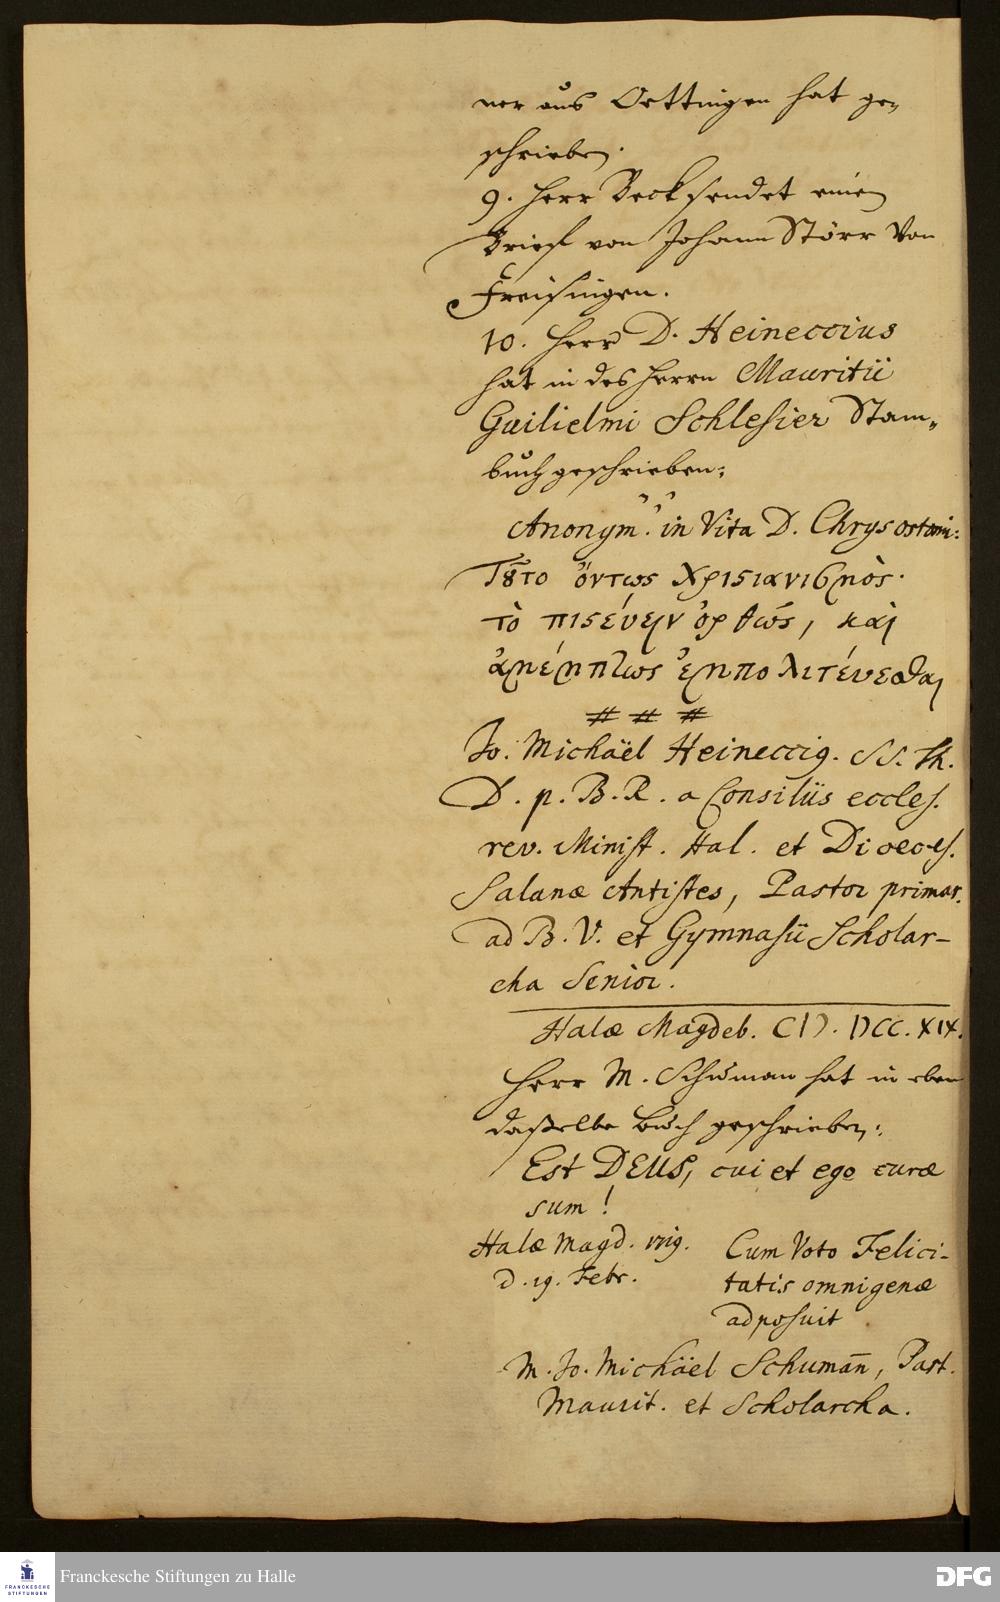 ner aus Oettingen hat ge„
schrieben.
9. Herr Beck sendet einen
Brief von Johann Störr von
Freisingen.
10. Herr D. Heineccius
hat in des Herrn Mauritii
Guilielmi Schlesier Stam„
buch geschrieben:
Anonym. in Vita D. Chrysostomi:
Τȣ̃το ὄντως Χριϛιανισμὸς·
τὸ πιϛέυειν ὀρθῶς, καὶ
ἀμέμπτως ἐμπολιτέυεσθαι
# # #
Jo. Michaël Heineccig. SS. Th.
D. p. B. R. a Consiliis eccles.
rev. Minist. Hal. et Dioeces.
Salanæ Antistes, Pastor primar.
ad B. V. et Gymnasii Scholar-
cha Senior.
Halæ Magdeb. CIↃ. IↃCC. XIX.
Herr M. Schuman hat in eben
daßelbe buch geschrieben:
Est DEUS, cui et ego curæ
sum!
Halæ Magd. 1719.
d. 19. Febr.
Cum Voto Felici-
tatis omnigenæ
adposuit
M. Jo. Michäel Schumañ, Past.
Maurit. et Scholarcha.
FRANCKESCHE
STIFTUNGEN
Franckesche Stiftungen zu Halle
DFG